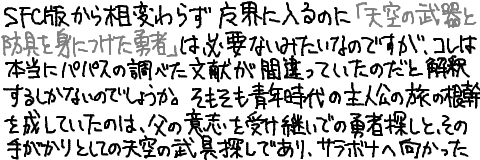 SFC版から相変わらず魔界に入るのに「天空の武器と
防具を身につけた勇者」は必要ないみたいなのですが、コレは
本当にパパスの調べた文献が間違っていたのだと解釈
するしかないのでしょうか。そもそも青年時代の主人公の旅の根幹
を成していたのは、父の意志を受け継いでの勇者探しと、その
手がかりとしての天空の武具探しであり、サラボナへ向かった